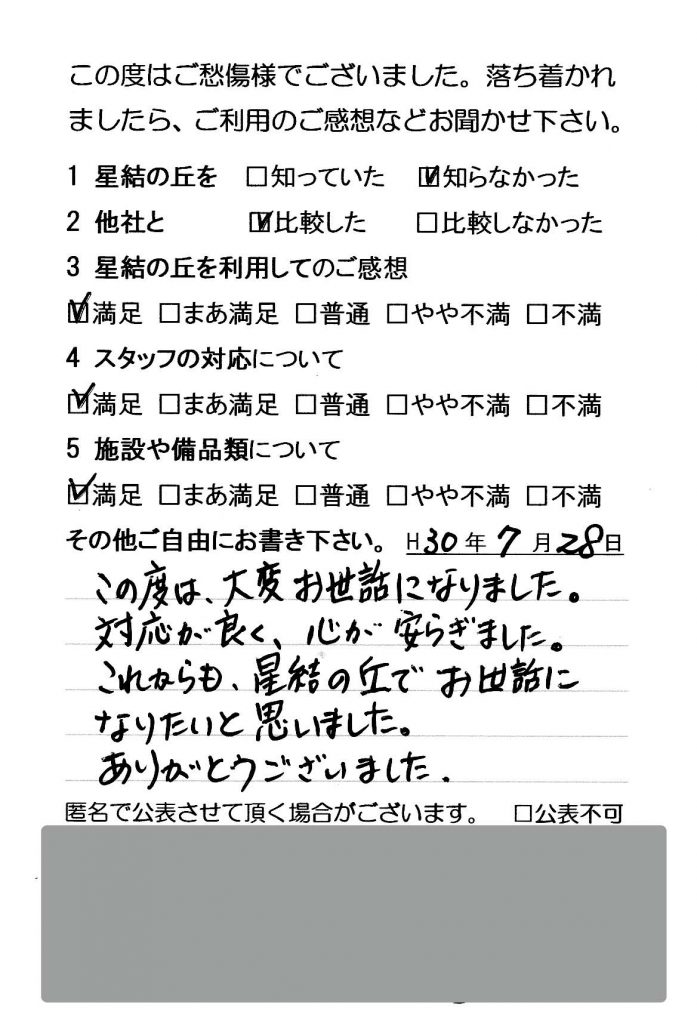 この度はご愁傷様でございました。落ち着かれ
ましたら、ご利用のご感想などお聞かせ下さい。
1 星結の丘を □知っていた ☑知らなかった
2 他社と ☑比較した □比較しなかった
3 星結の丘を利用してのご感想
☑満足 □まあ満足 □普通 □やや不満 □不満
4 スタッフの対応について
☑満足 □まあ満足 □普通 □やや不満 □不満
5 施設や備品類について
☑満足 □まあ満足 □普通 □やや不満 □不満
その他ご自由にお書き下さい。 H30年7月28日
この度は、大変お世話になりました。
対応が良く、心が安らぎました。
これからも、星結の丘でお世話に
なりたいと思いました。
ありがとうございました.
匿名で公表させて頂く場合がございます。 □公表不可